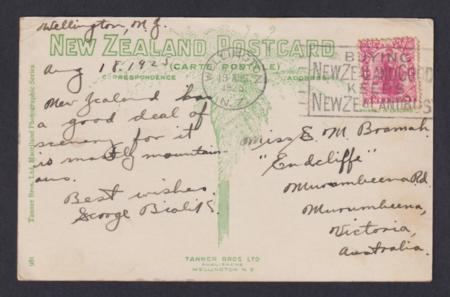 Wellington, N.Z.
NEW ZEALAND POSTCARD
(CARTE POSTALE)
Aug 18. 1925
CORRESPONDENCE
ADDRESS
New Zealand has
a good deal of
scenery for it
is mostly mountain-
ous.
Best wishes.
George
WELLINGTON
18 AUG
1925
N.Z.
BUYING
NEW ZEALAND GOODS
KEEPS
NEW ZEALAND BUSY
Miss E. M. Bramah
"Endcliffe"
Murrumbeena Rd
Murrumbeena,
Victoria,
Australia.
TANNER BROS LTD
PUBLISHERS
WELLINGTON N.Z.
Tanner Bros. Ltd. Maoriland Photographic Series